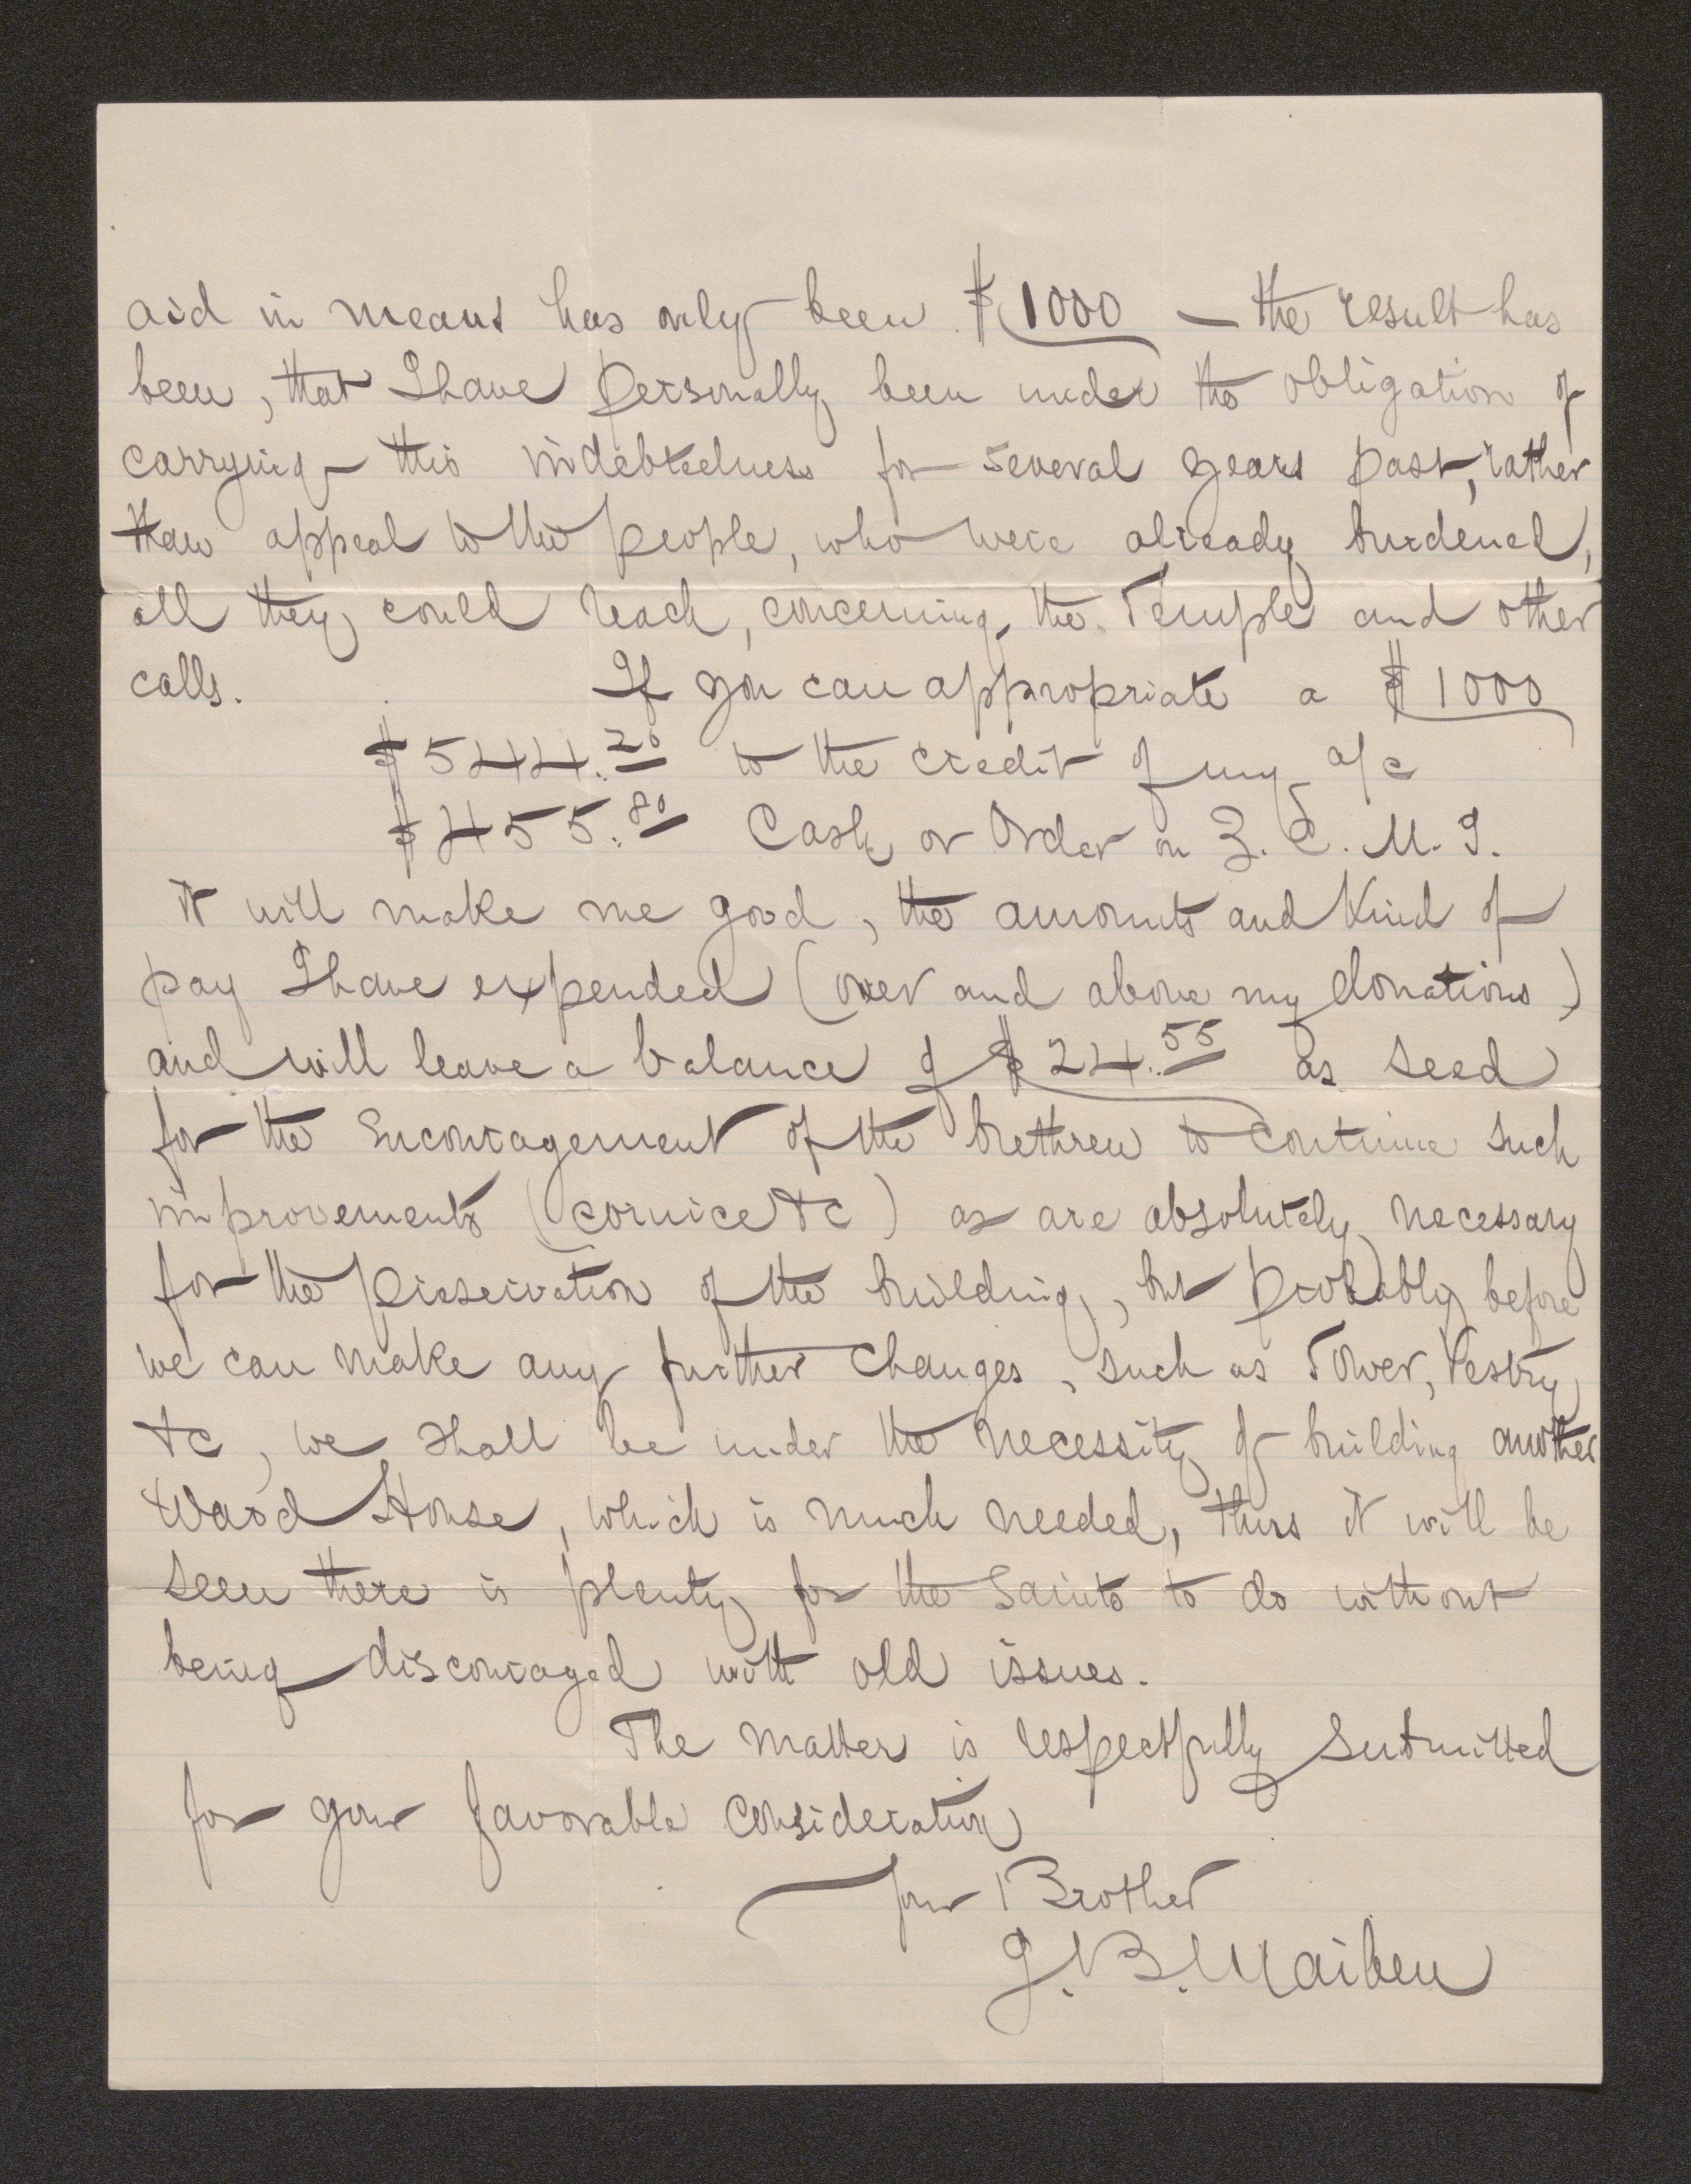 aid in means has only been $1000 — the result has
been, that I have personally been under the obligation of
carrying this indebtedness for several years past, rather
than appeal to the people, who were already burdened,
all they could reach, concerning the Temple and other
calls. If you can appropriate a $1000
$544.20 to the credit of my a/c
$455.80 Cash or Order on Z. C. M. I.
it will make me good, the amounts and Kind of
pay I have expended (over and above my donations)
and will leave a balance of $24.55 as seed
for the Encouragement of the brethren to continue such
improvements (cornice &c) as are absolutely necessary
for the preservation of the building, but probably before
we can make any further changes, such as Tower, Vestry
&c, we shall be under the necessity of building another
Ward House, which is much needed, thus it will be
seen there is plenty for the Saints to do without
being discouraged with old issues.
The matter is respectfully submitted
for your favorable consideration
Your Brother
J. B. Maiben